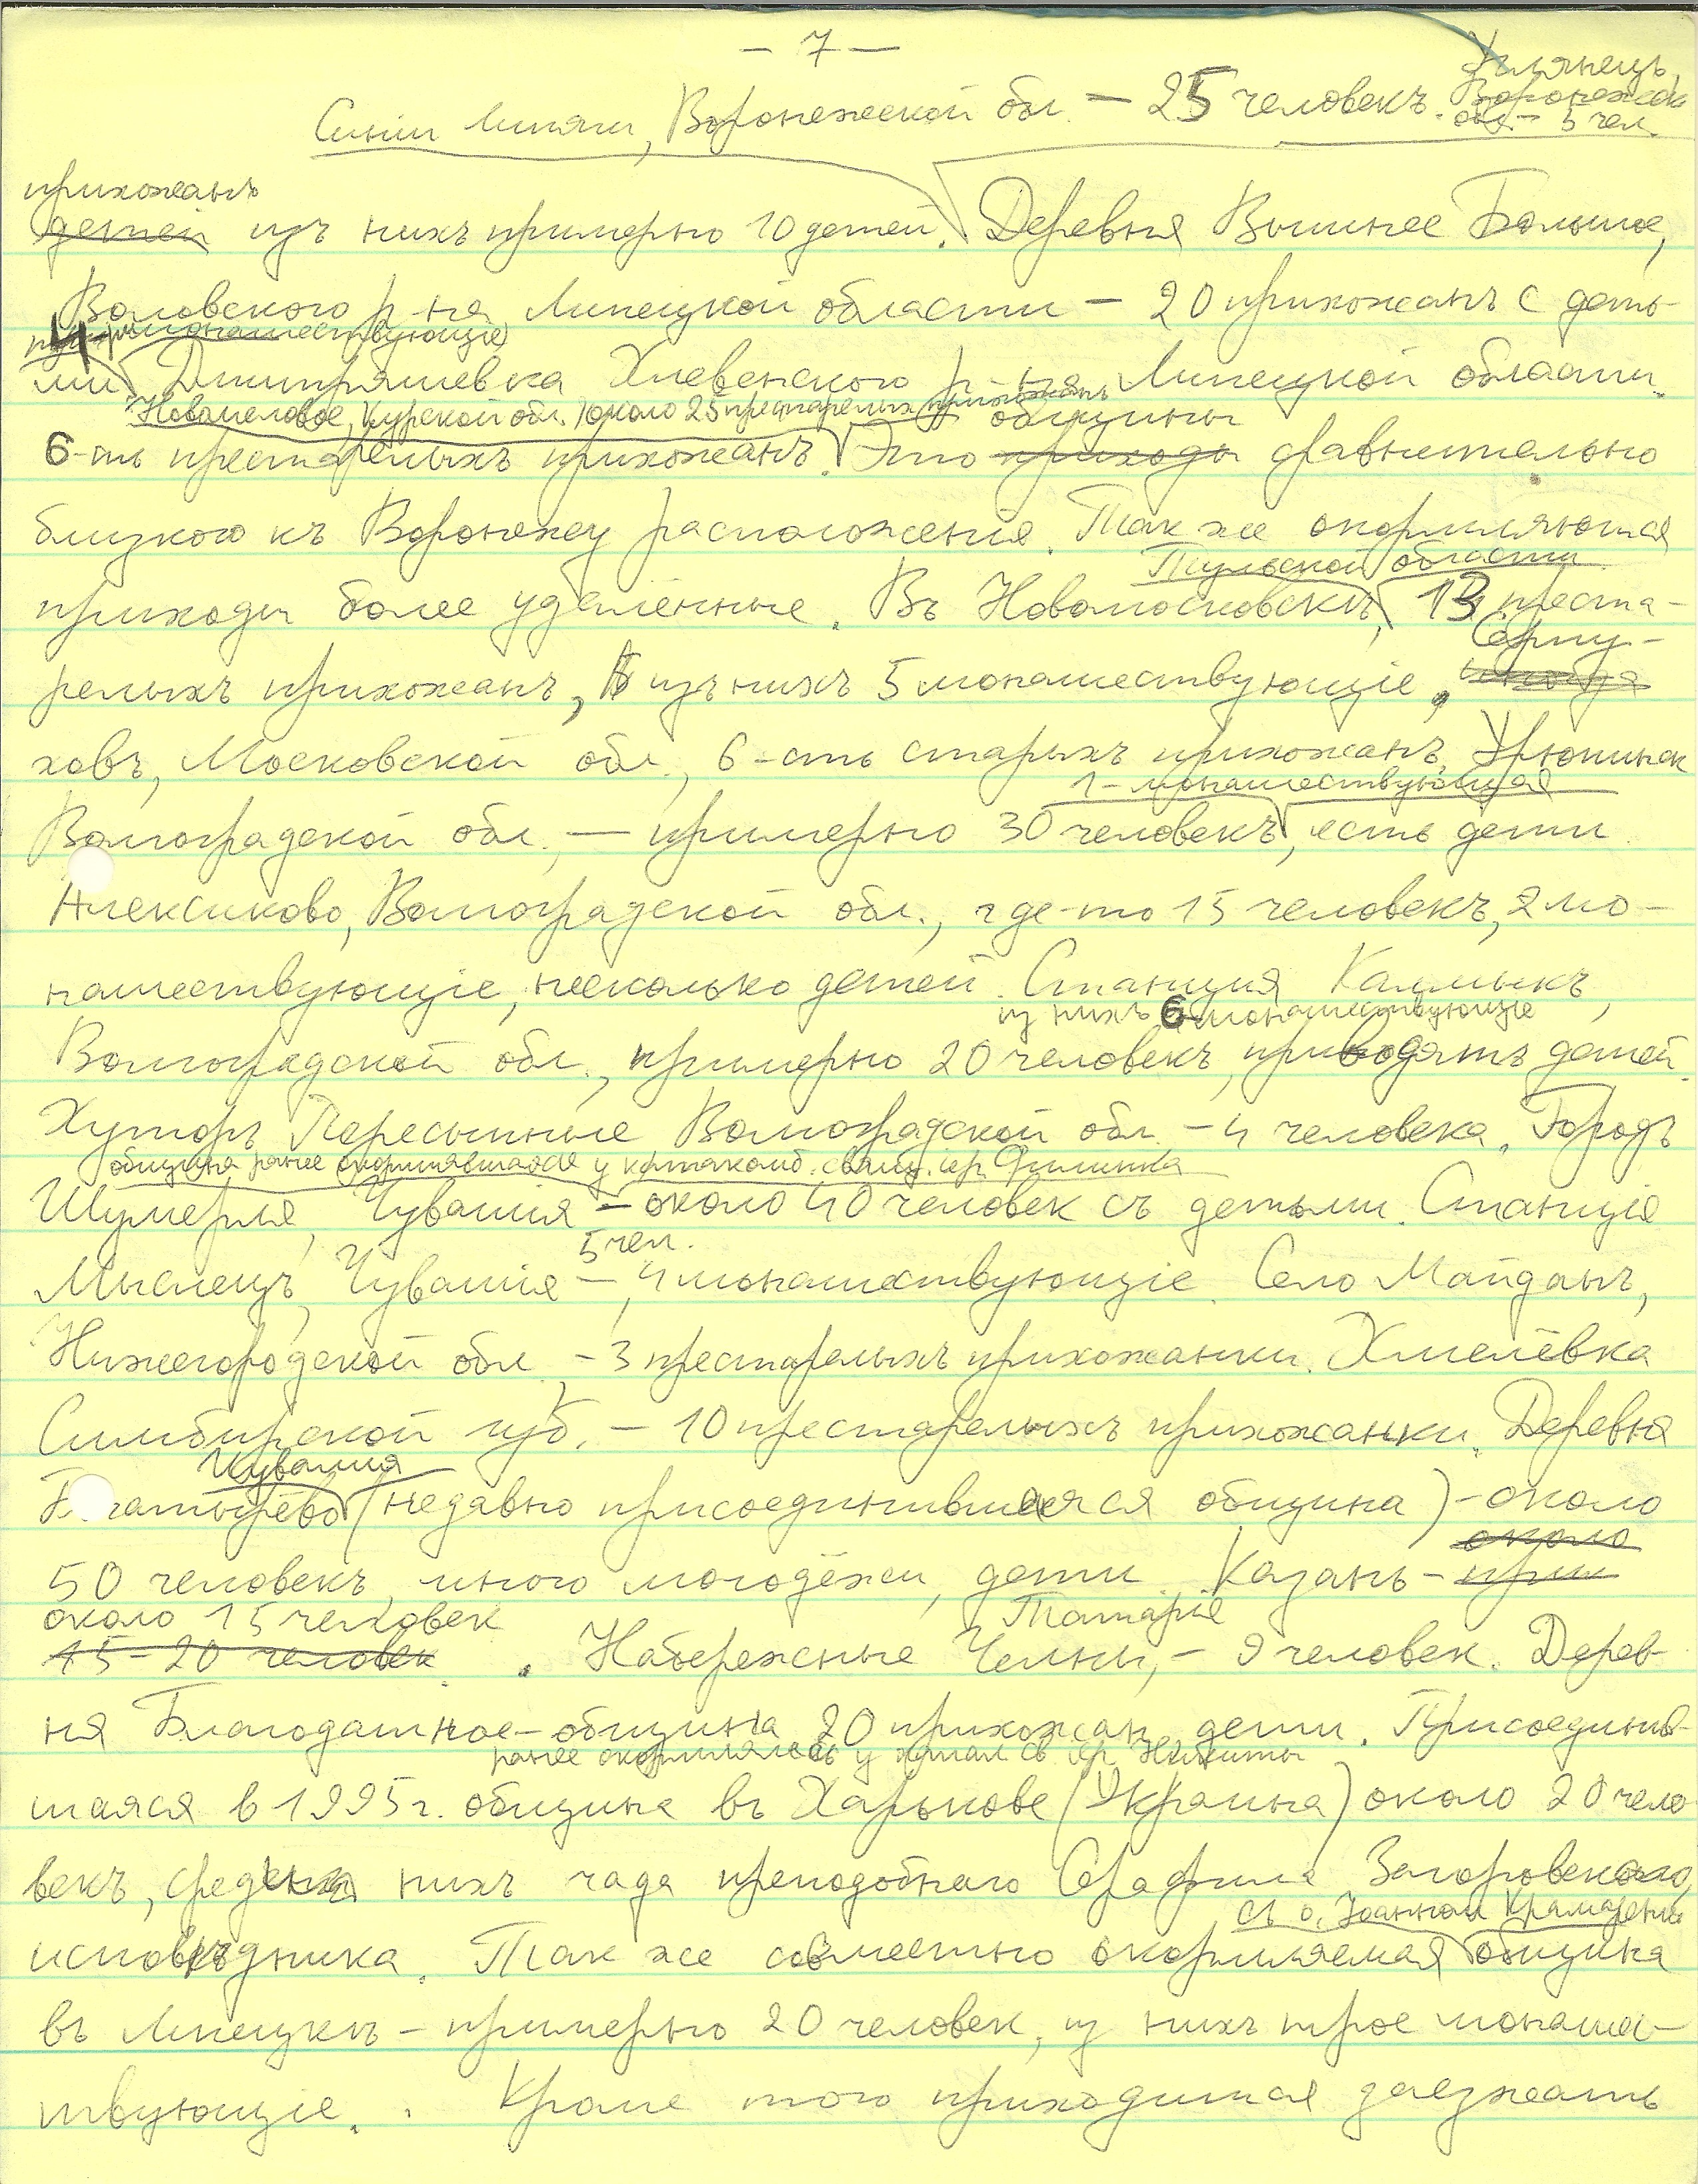 — 7 —
Улянецъ,
Воронежск
обл. – 5 чел.
Синіи Липяги, Воронежской обл. — 25 человекъ.
прихожанъ
детей изъ нихъ примерно 10 детей. Деревня Вышнее Большое,
Воловского р-на Липецкой области — 20 прихожанъ с деть-
4 монашествующіе
ми Дмитряшевка Хлевенского р-на Липецкой области
Новомеловое, Курской обл. около 25 престарелых прихожанъ
общины
6-ть престарелыхъ прихожанъ. Это приходы сравнительно
близкого къ Воронежу расположенія. Так же окормляются
Тульской области
приходы более удалённые. Въ Новомосковскъ, 13 преста-
Серпу-
релыхъ прихожанъ, изъ нихъ 5 монашествующіе,
ховъ, Московской обл., 6-сть старыхъ прихожанъ, Урюпинск
1 – монашествующая
Волгоградской обл. — примерно 30 человекъ, есть дети.
Алексиково, Волгоградской обл., где-то 15 человекъ, 2 мо-
нашествующіе, несколько детей. Станция Калмыкъ,
из нихъ 6 монашествующіе
Волгоградской обл., примерно 20 человекъ, приводятъ детей.
Хуторъ Пересыпные Волгоградской обл. – 4 человека. Городъ
община ранее окормлявшаяся у катакомб. свящ. іер. Филиппа
Шумерля, Чувашія – около 40 человек съ детьми. Станція
5 чел.
Мыслецъ, Чувашія – , 4 монашествующіе. Село Майданъ,
Нижегородской обл. – 3 престарелыхъ прихожанки. Хмелёвка
Симбирской губ. – 10 престарелыхъ прихожанки. Деревня
Чувашия
Б гатырёво (недавно присоединившаяся община) – около
около
50 человекъ, много молодёжи, дети. Казань – прим
около 15 человек
Татарія
15–20 человек . Набережные Челны, – 9 человек. Дерев-
ня Благодатное – община 20 прихожан, дети. Присоединив-
ранее окормлялась у катак. св. іер. Никиты
шаяся в 1995 г. община въ Харькове (Украина) около 20 чело-
векъ, среди нихъ чада преподобнаго Серафима Загоровского,
съ о. Іоанном Крамаренко
исповѣдника. Так же совместно окормляемая община
въ Липецкъ – примерно 20 человек, из нихъ трое монашес-
твующіе. . Кроме того приходится заезжать